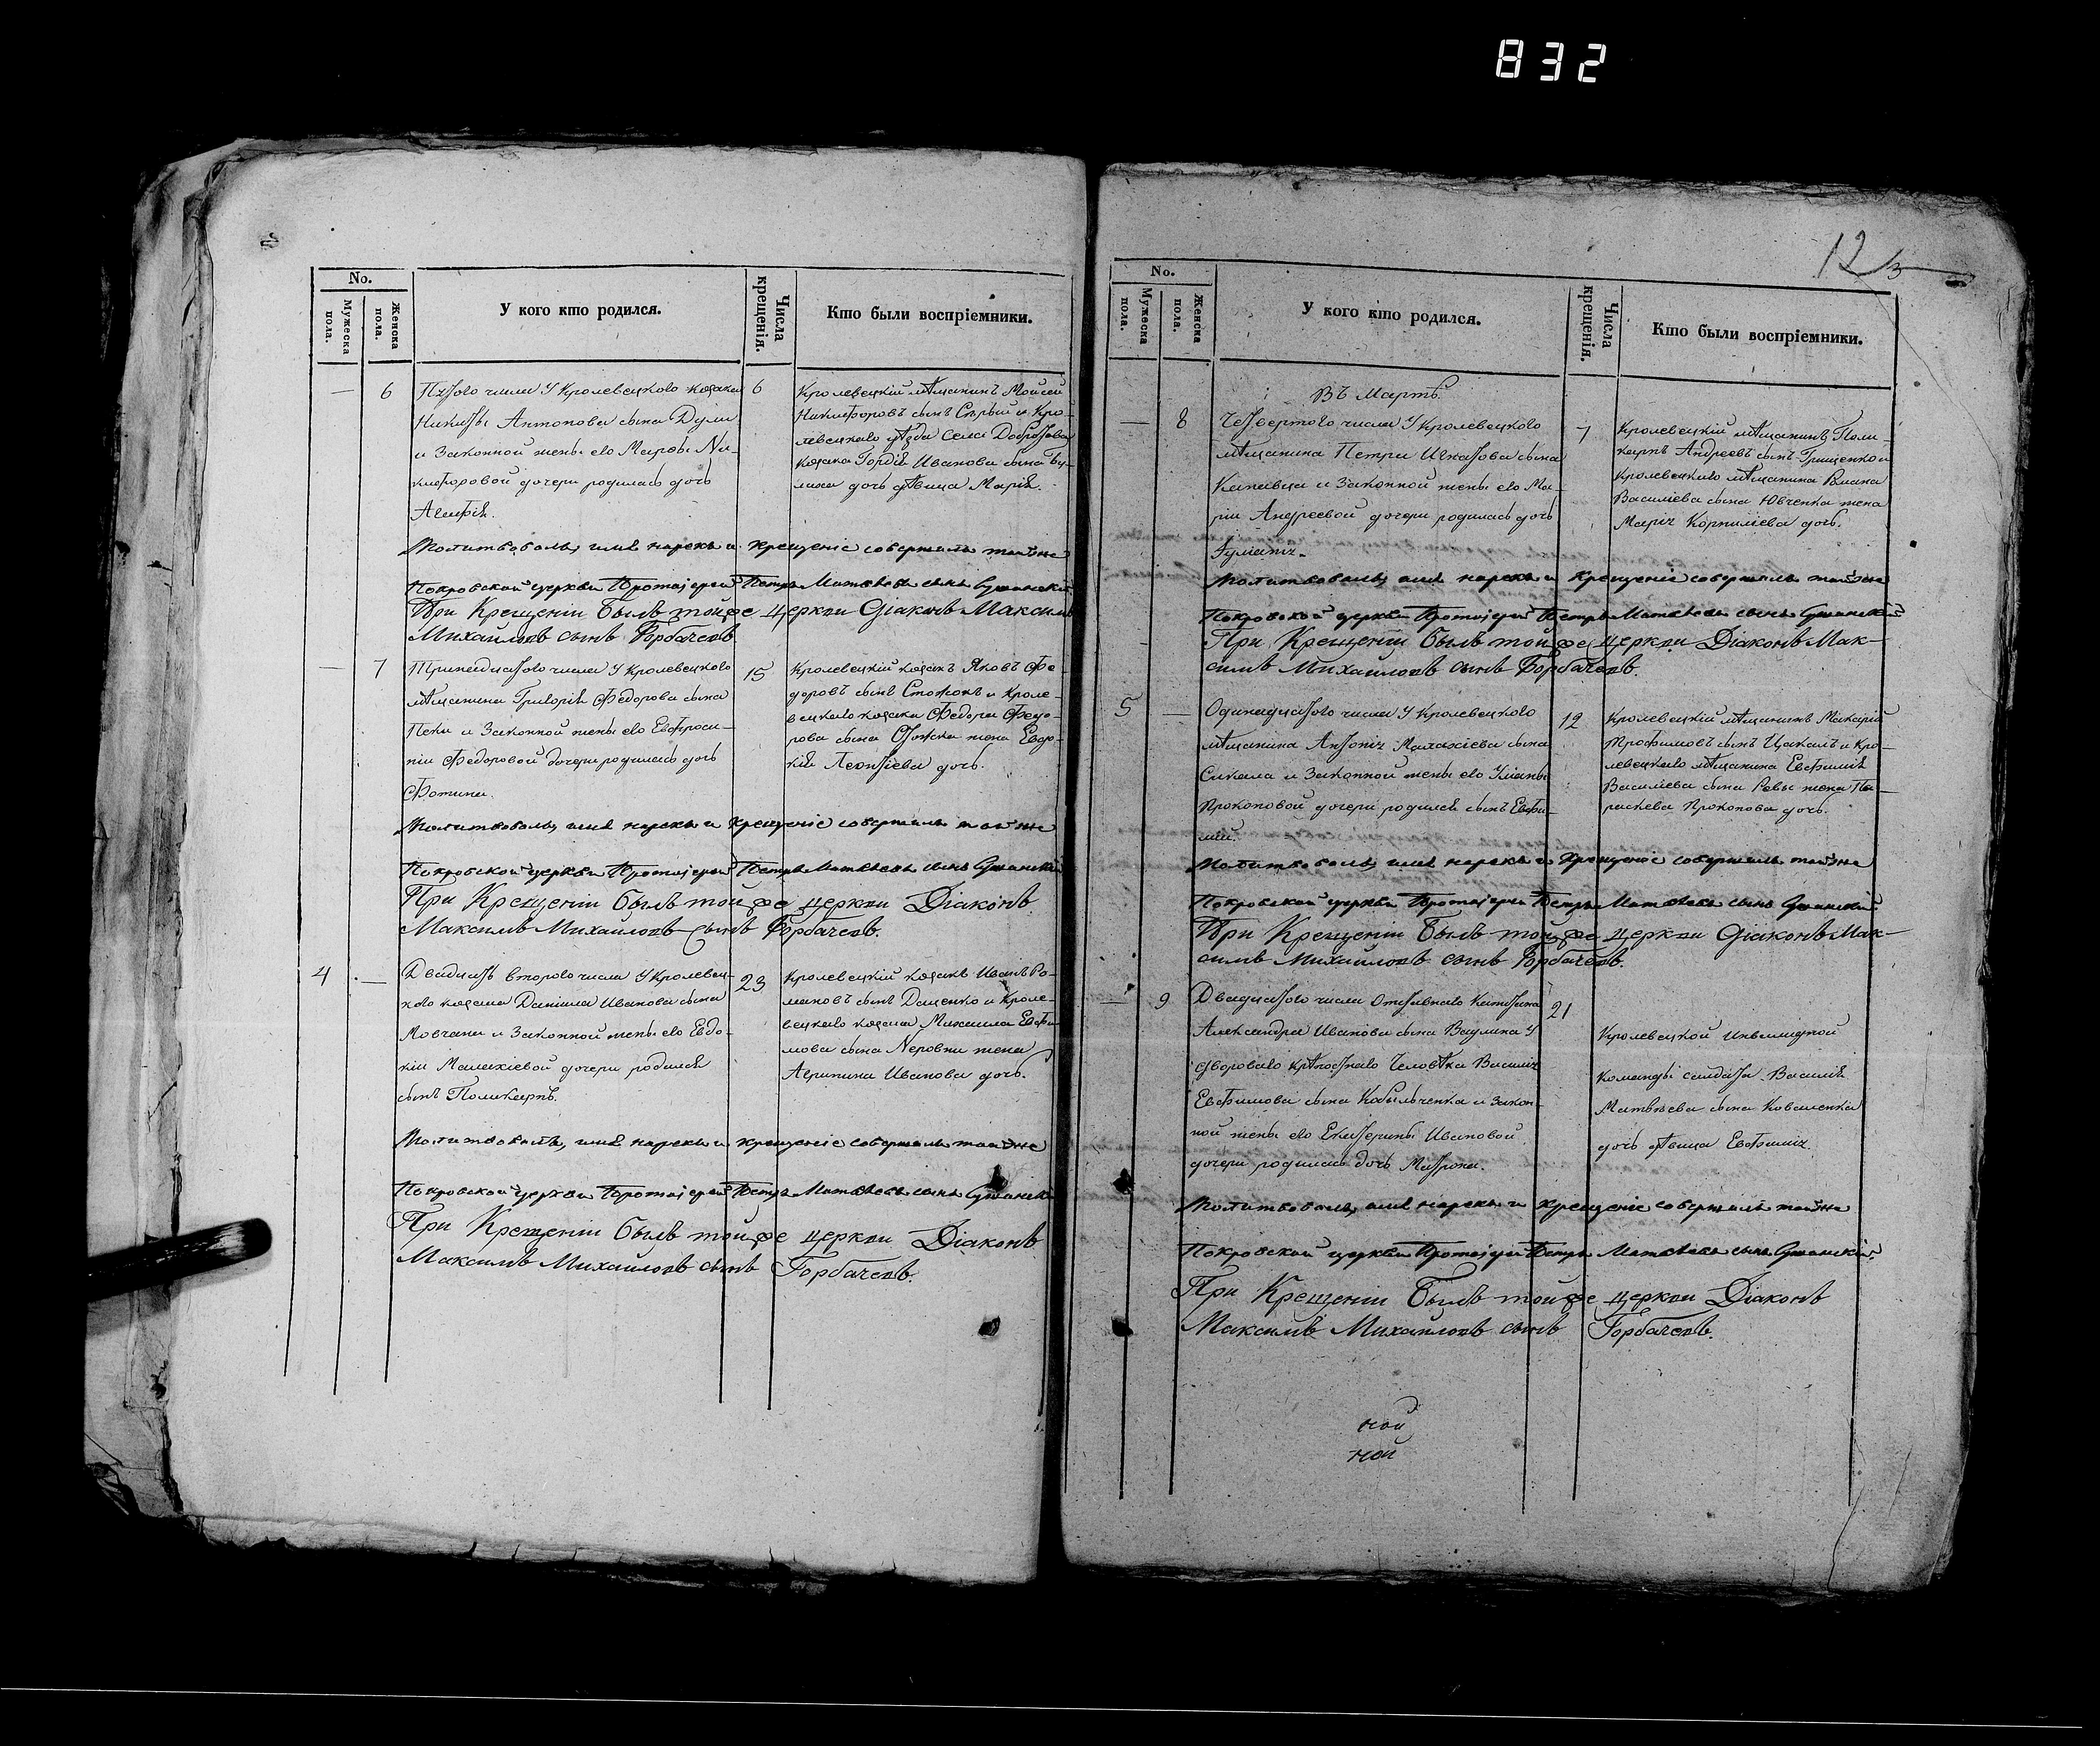 832
No.
Мужеска пола.
Женска пола.
У кого кто родился.
Числа крещенія.
Кто были воспріемники.
— 6
Пятого числа У Кролевецкого козака
Никиты Антонова сына Дули
и Законной жены его Марѳы Ни-
кифоровой дочери родилась дочь
Агафія.
6
Кролевецкій мѣщанинъ Мойсей
Никифоровъ сынъ Сѣрый и Кро-
левецкаго уѣзда села
козака Гордія Иванова сына
дочь дѣвица Марія.
Молитвовалъ, имя нарекъ и крещеніе совершилъ той же
Покровской церкви Протоіерей Петръ Матвѣевъ сынъ
При Крещеніи былъ той же церкви Діаконъ Максимъ
Михайловъ сынъ Горбачевъ.
— 7
Тринадцатого числа У Кролевецкого
мѣщанина Григорія Федорова сына
и Законной жены его Евфроси-
ніи Федоровой дочери родилась дочь
Фотина.
15
Кролевецкій козакъ Яковъ Фе-
доровъ сынъ и Кроле-
вецкаго козака Федора Федо-
рова сына жена Евдо-
кія Леонтіева дочь.
Молитвовалъ, имя нарекъ и крещеніе совершилъ той же
Покровской церкви Протоіерей Петръ Матвѣевъ сынъ
При Крещеніи былъ той же церкви Діаконъ
Максимъ Михайловъ сынъ Горбачевъ.
4 —
Двадцать второго числа У Кролевец-
кого козака Даніила Иванова сына
Мовчана и Законной жены его Евдо-
кіи Малахіевой дочери родился
сынъ Поликарпъ.
23
Кролевецкій козакъ Иванъ Ро-
мановъ сынъ Даценко и Кроле-
вецкаго козака Михаила Евфи-
мова сына жена
Агрипина Иванова дочь.
Молитвовалъ, имя нарекъ и крещеніе совершилъ той же
Покровской церкви Протоіерей Петръ Матвѣевъ сынъ
При Крещеніи былъ той же церкви Діаконъ
Максимъ Михайловъ сынъ Горбачевъ.
12
No.
Мужеска пола.
Женска пола.
У кого кто родился.
Числа крещенія.
Кто были воспріемники.
Въ Мартѣ.
— 8
Четвертого числа У Кролевецкого
мѣщанина Петра Игнатова сына
и Законной жены его Ма-
ріи Андреевой дочери родилась дочь
Іуліанія.
7
Кролевецкій мѣщанинъ Поли-
карпъ Андреевъ сынъ Грищенко и
Кролевецкаго мѣщанина
Василіева сына Ювченка жена
Марія Корниліева дочь.
Молитвовалъ, имя нарекъ и крещеніе совершилъ той же
Покровской церкви Протоіерей Петръ Матвѣевъ сынъ
При Крещеніи былъ той же церкви Діаконъ Мак-
симъ Михайловъ сынъ Горбачевъ.
5 —
Одинадцатого числа У Кролевецкого
мѣщанина Антонія Малахіева сына
и Законной жены его Уліаны
Прокоповой дочери родился сынъ Евфи-
мій.
12
Кролевецкій мѣщанинъ Макарій
Трофимовъ сынъ и Кро-
левецкаго мѣщанина Евфимія
Василіева сына Ревы жена Па-
раскева Прокопова дочь.
Молитвовалъ, имя нарекъ и крещеніе совершилъ той же
Покровской церкви Протоіерей Петръ Матвѣевъ сынъ
При Крещеніи былъ той же церкви Діаконъ Мак-
симъ Михайловъ сынъ Горбачевъ.
— 9
Двадцатого числа Отставнаго Капитана
Александра Иванова сына У
дворового крѣпостнаго Человѣка Василія
Евфимова сына Кобыльченка и Закон-
ной жены его Екатерины Ивановой
дочери родилась дочь Матрона.
21
Кролевецкой инвалидной
команды солдата Василія
Матвѣева сына Коваленка
дочь дѣвица Евфимія.
Молитвовалъ, имя нарекъ и крещеніе совершилъ той же
Покровской церкви Протоіерей Петръ Матвѣевъ сынъ
При Крещеніи былъ той же церкви Діаконъ
Максимъ Михайловъ сынъ Горбачевъ.
ной
ной